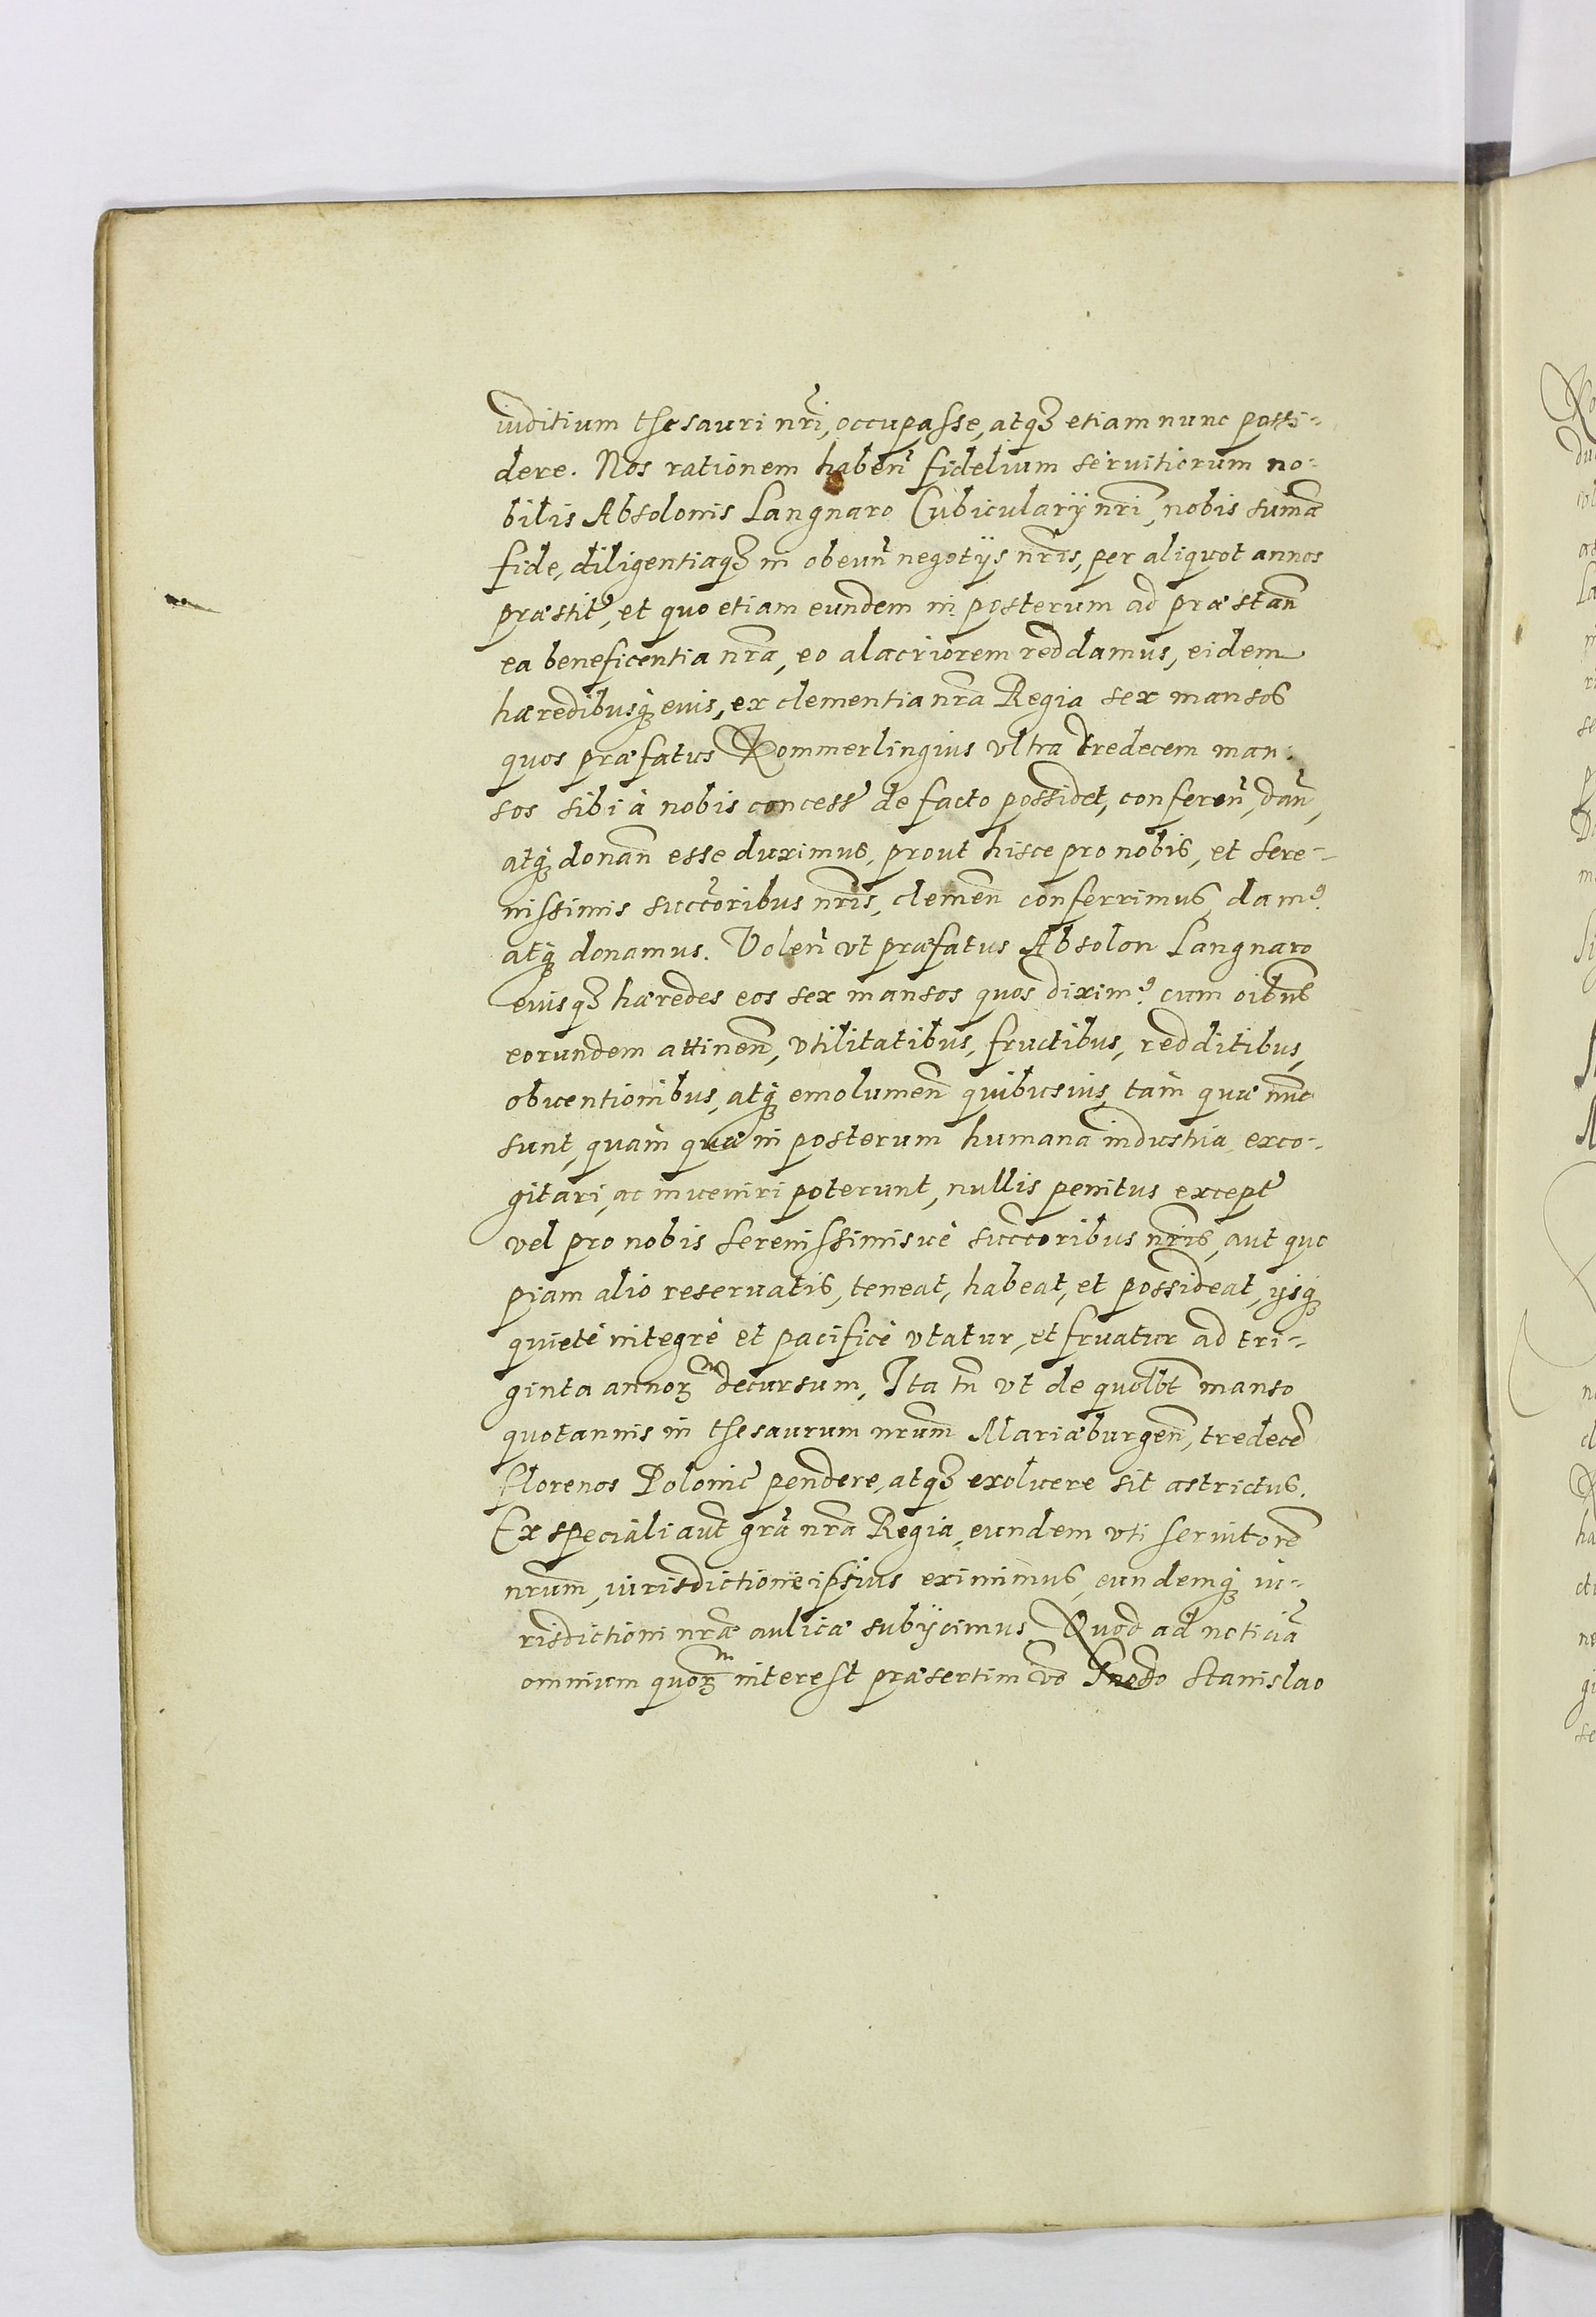 iuditium thesauri nri, occupasse, atq3 etiam nunc possi-
dere. Nos rationem haben̄ fidelium seruitiorum no-
bilis Absolonis Langnaro Cubicularij nri, nobis sum̄a
fide, diligentiaq3 in obeun̄ negotijs nris, per aliquot annos
præstit, et quo etiam eundem in posterum ad præstan̄
ea beneficentia nra, eo alacriorem reddamus, eidem
hæredibusq3 eius, ex clementia nra Regia sex mansos
quos præfatus Kommerlingius vltra tredecem man-
sos sibi à nobis concess de facto possidet, conferen̄, dan̄,
atq3 donan̄ esse duximus, prout hisce pro nobis, et sere-
nissimis succ̄oribus nris, clemen̄ conferrimus, dam9
atq3 donamus. Volen̄ vt præfatus Absolon Langnaro
eiusq3 hæredes eos sex mansos quos dixim9 cum oībus
eorundem attinen̄, vtilitatibus, fructibus, redditibus,
obuentionibus, atq3 emolumen̄ quibusuis, tam quæ nūc
sunt, quàm quæ in posterum humana industria exco-
gitari, ac inueniri poterunt, nullis penitus except
vel pro nobis serenissimisuè succ̄oribus nris, aut quo
piam alio reseruatis, teneat, habeat, et possideat, ijsq3
quietè integrè et pacificè vtatur, et fruatur ad tri-
ginta annor3m decursum, Ita tn̄ vt de quolbt manso
quotannis in thesaurum nrum Mariæburgen̄, tredecē
florenos Polonic pendere, atq3 exoluere sit astrictus.
Ex speciali aut grā nra Regia, eundem vti seruitorē
nrum, iurisdictione ipsius eximimus, eundemq3 iu-
risdictioni nræ aulicæ subijcimus. Quod ad noticiā
omnium quor3m interest præsertim vo Gnoso Stanislao